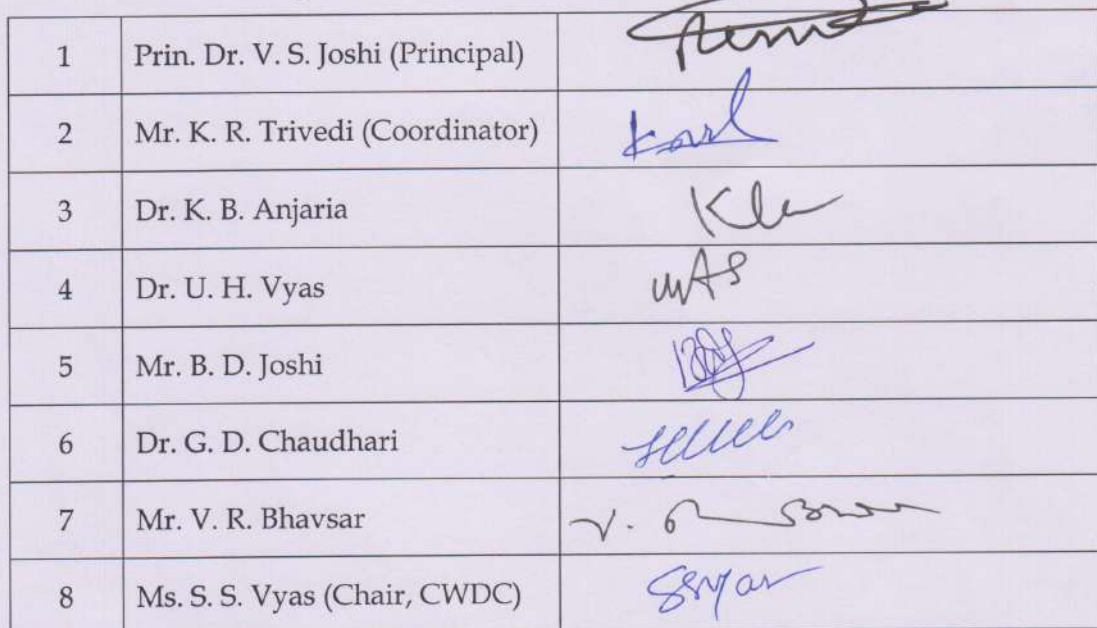 1 Prin. Dr. V. S. Joshi (Principal)
2 Mr. K. R. Trivedi (Coordinator)
3 Dr. K. B. Anjaria
4 Dr. U. H. Vyas
5 Mr. B. D. Joshi
6 Dr. G. D. Chaudhari
7 Mr. V. R. Bhavsar
8 Ms. S. S. Vyas (Chair, CWDC)